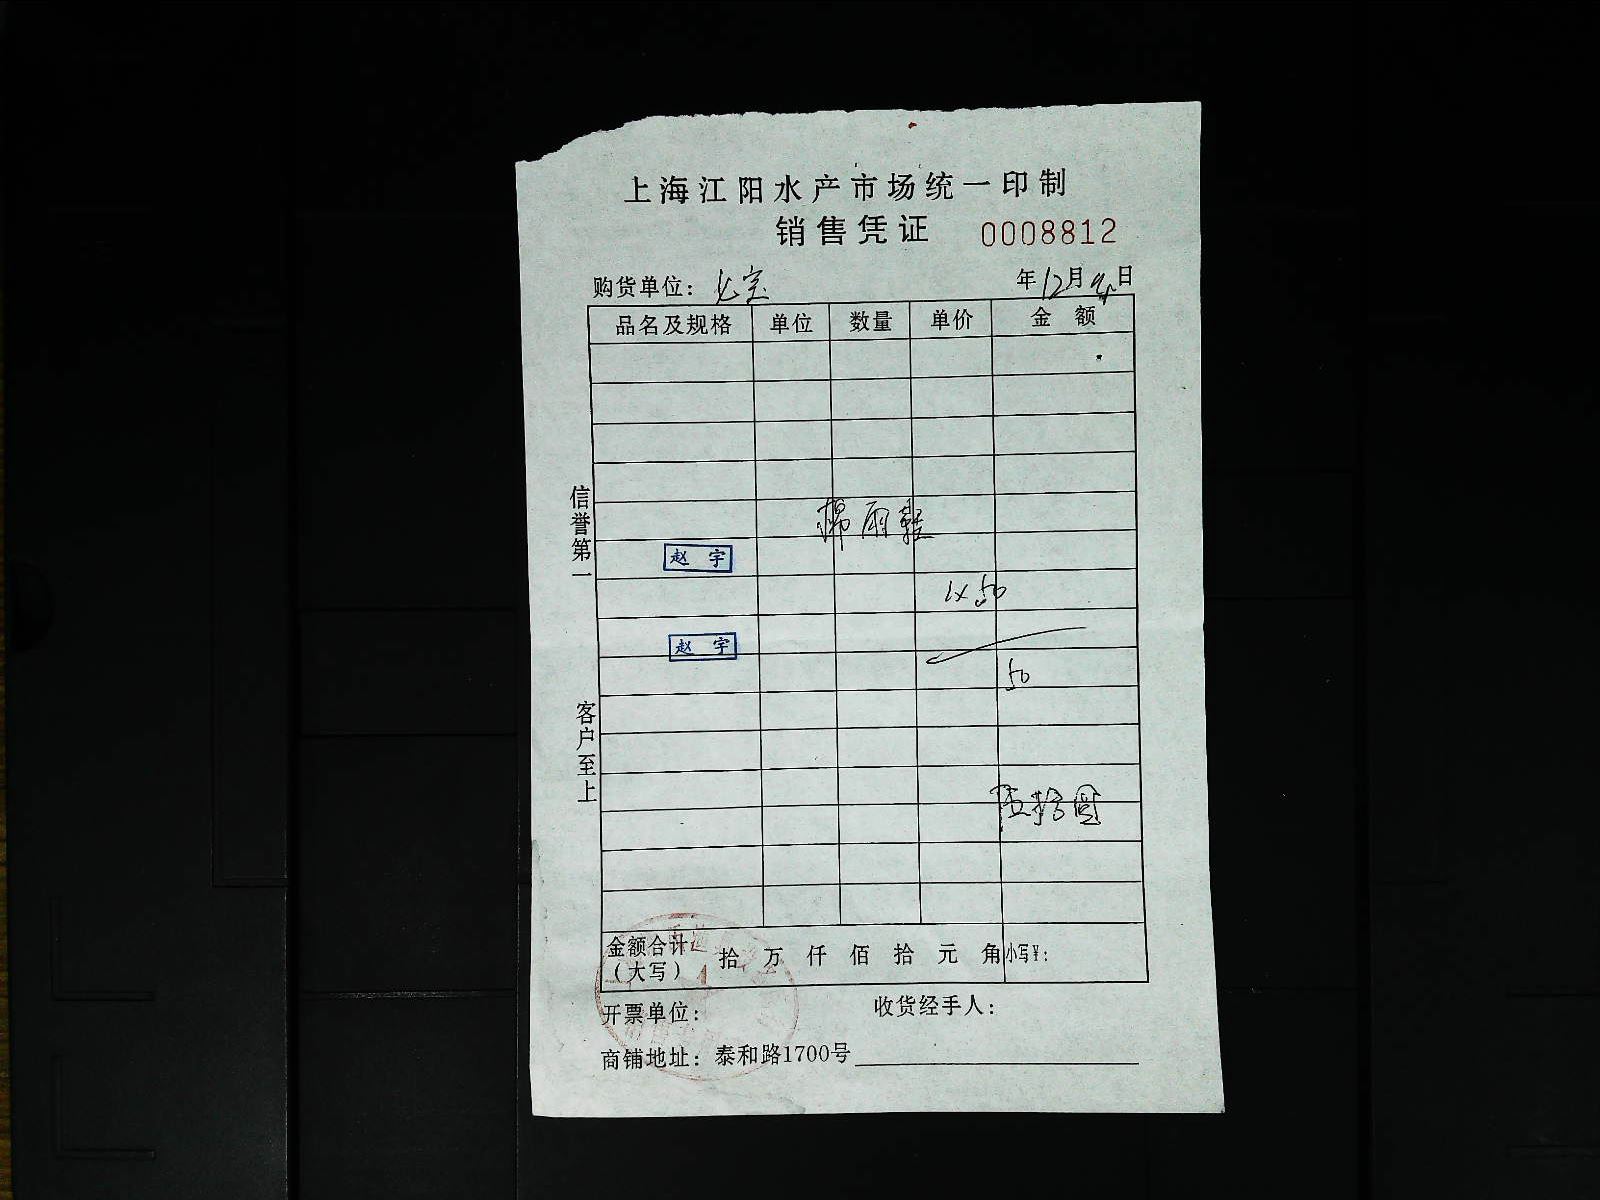 上海江阳水产市场统一印制
销售凭证 0008812
购货单位: 年12月 日
品名及规格 单位 数量 单价 金额
棉雨鞋
信誉第一
赵宇
1×50
赵宇
50
客户至上
伍拾圆
金额合计: (大写) 拾 万 仟 佰 拾 元 角 小写¥:
开票单位: 收货经手人:
商铺地址: 泰和路1700号